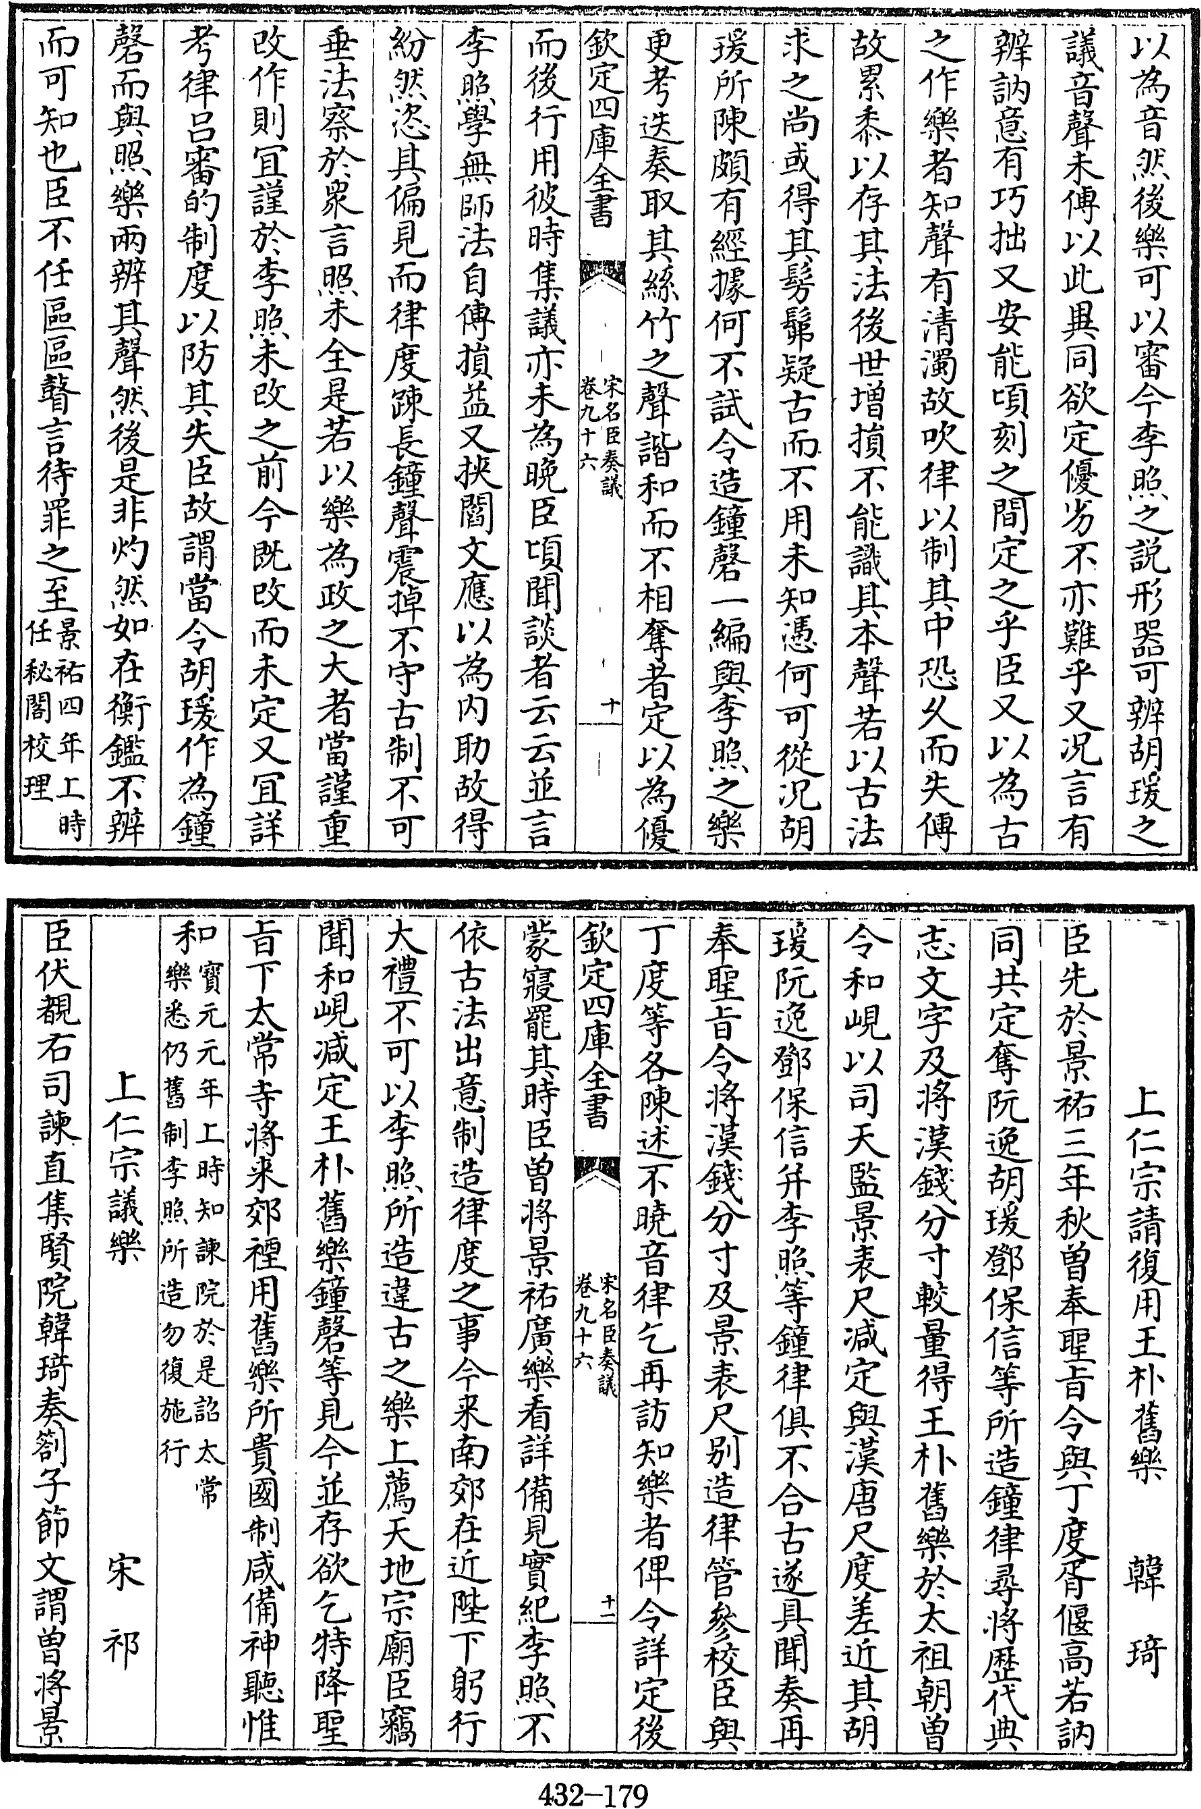 以為音然後樂可以審今李照之說形器可辨胡瑗之
議音聲未傅以此異同欲定優劣不亦難乎又况言有
辨訥意有巧拙又安能頃刻之間定之乎臣又以為古
之作樂者知聲有清濁故吹律以制其中恐久而失傳
故累黍以存其法後世增損不能識其本聲若以古法
求之尚或得其髣髴疑古而不用未知憑何可從况胡
瑗所陳頗有經據何不試令造鐘磬一編與李照之樂
更考迭奏取其絲竹之聲諧和而不相奪者定以為優
欽定四庫全書
宋名臣奏議
卷九十六
十
而後行用彼時集議亦未為晚臣頃聞談者云云並言
李照學無師法自傳損益又挾閻文應以為内助故得
紛然恣其偏見而律度疎長鐘聲震掉不守古制不可
垂法察於衆言照未全是若以樂為政之大者當謹重
改作則宜謹於李照未改之前今既改而未定又宜詳
考律呂審的制度以防其失臣故謂當令胡瑗作為鐘
磬而與照樂兩辨其聲然後是非灼然如在衡鑑不辨
而可知也臣不任區區瞽言待罪之至
景祐四年上時
任秘閣校理
上仁宗請復用王朴舊樂 韓琦
臣先於景祐三年秋曾奉聖旨令與丁度胥偃高若訥
同共定奪阮逸胡瑗鄧保信等所造鐘律尋將歷代典
志文字及將漢錢分寸較量得王朴舊樂於太祖朝曾
令和峴以司天監景表尺減定與漢唐尺度差近其胡
瑗阮逸鄧保信并李照等鐘律俱不合古遂具聞奏再
奉聖旨令將漢錢分寸及景表尺别造律管參校臣與
丁度等各陳述不曉音律乞再訪知樂者俾令詳定後
欽定四庫全書
宋名臣奏議
卷九十六
十一
蒙寢罷其時臣曾將景祐廣樂看詳備見實紀李照不
依古法出意制造律度之事今來南郊在近陛下躬行
大禮不可以李照所造違古之樂上薦天地宗廟臣竊
聞和峴減定王朴舊樂鐘磬等見今並存欲乞特降聖
旨下太常寺將来郊禋用舊樂所貴國制咸備神聽惟
和
寶元元年上時知諫院於是詔太常
樂悉仍舊制李照所造勿復施行
上仁宗議樂 宋祁
臣伏覩右司諫直集賢院韓琦奏劄子節文謂曾將景
432-179